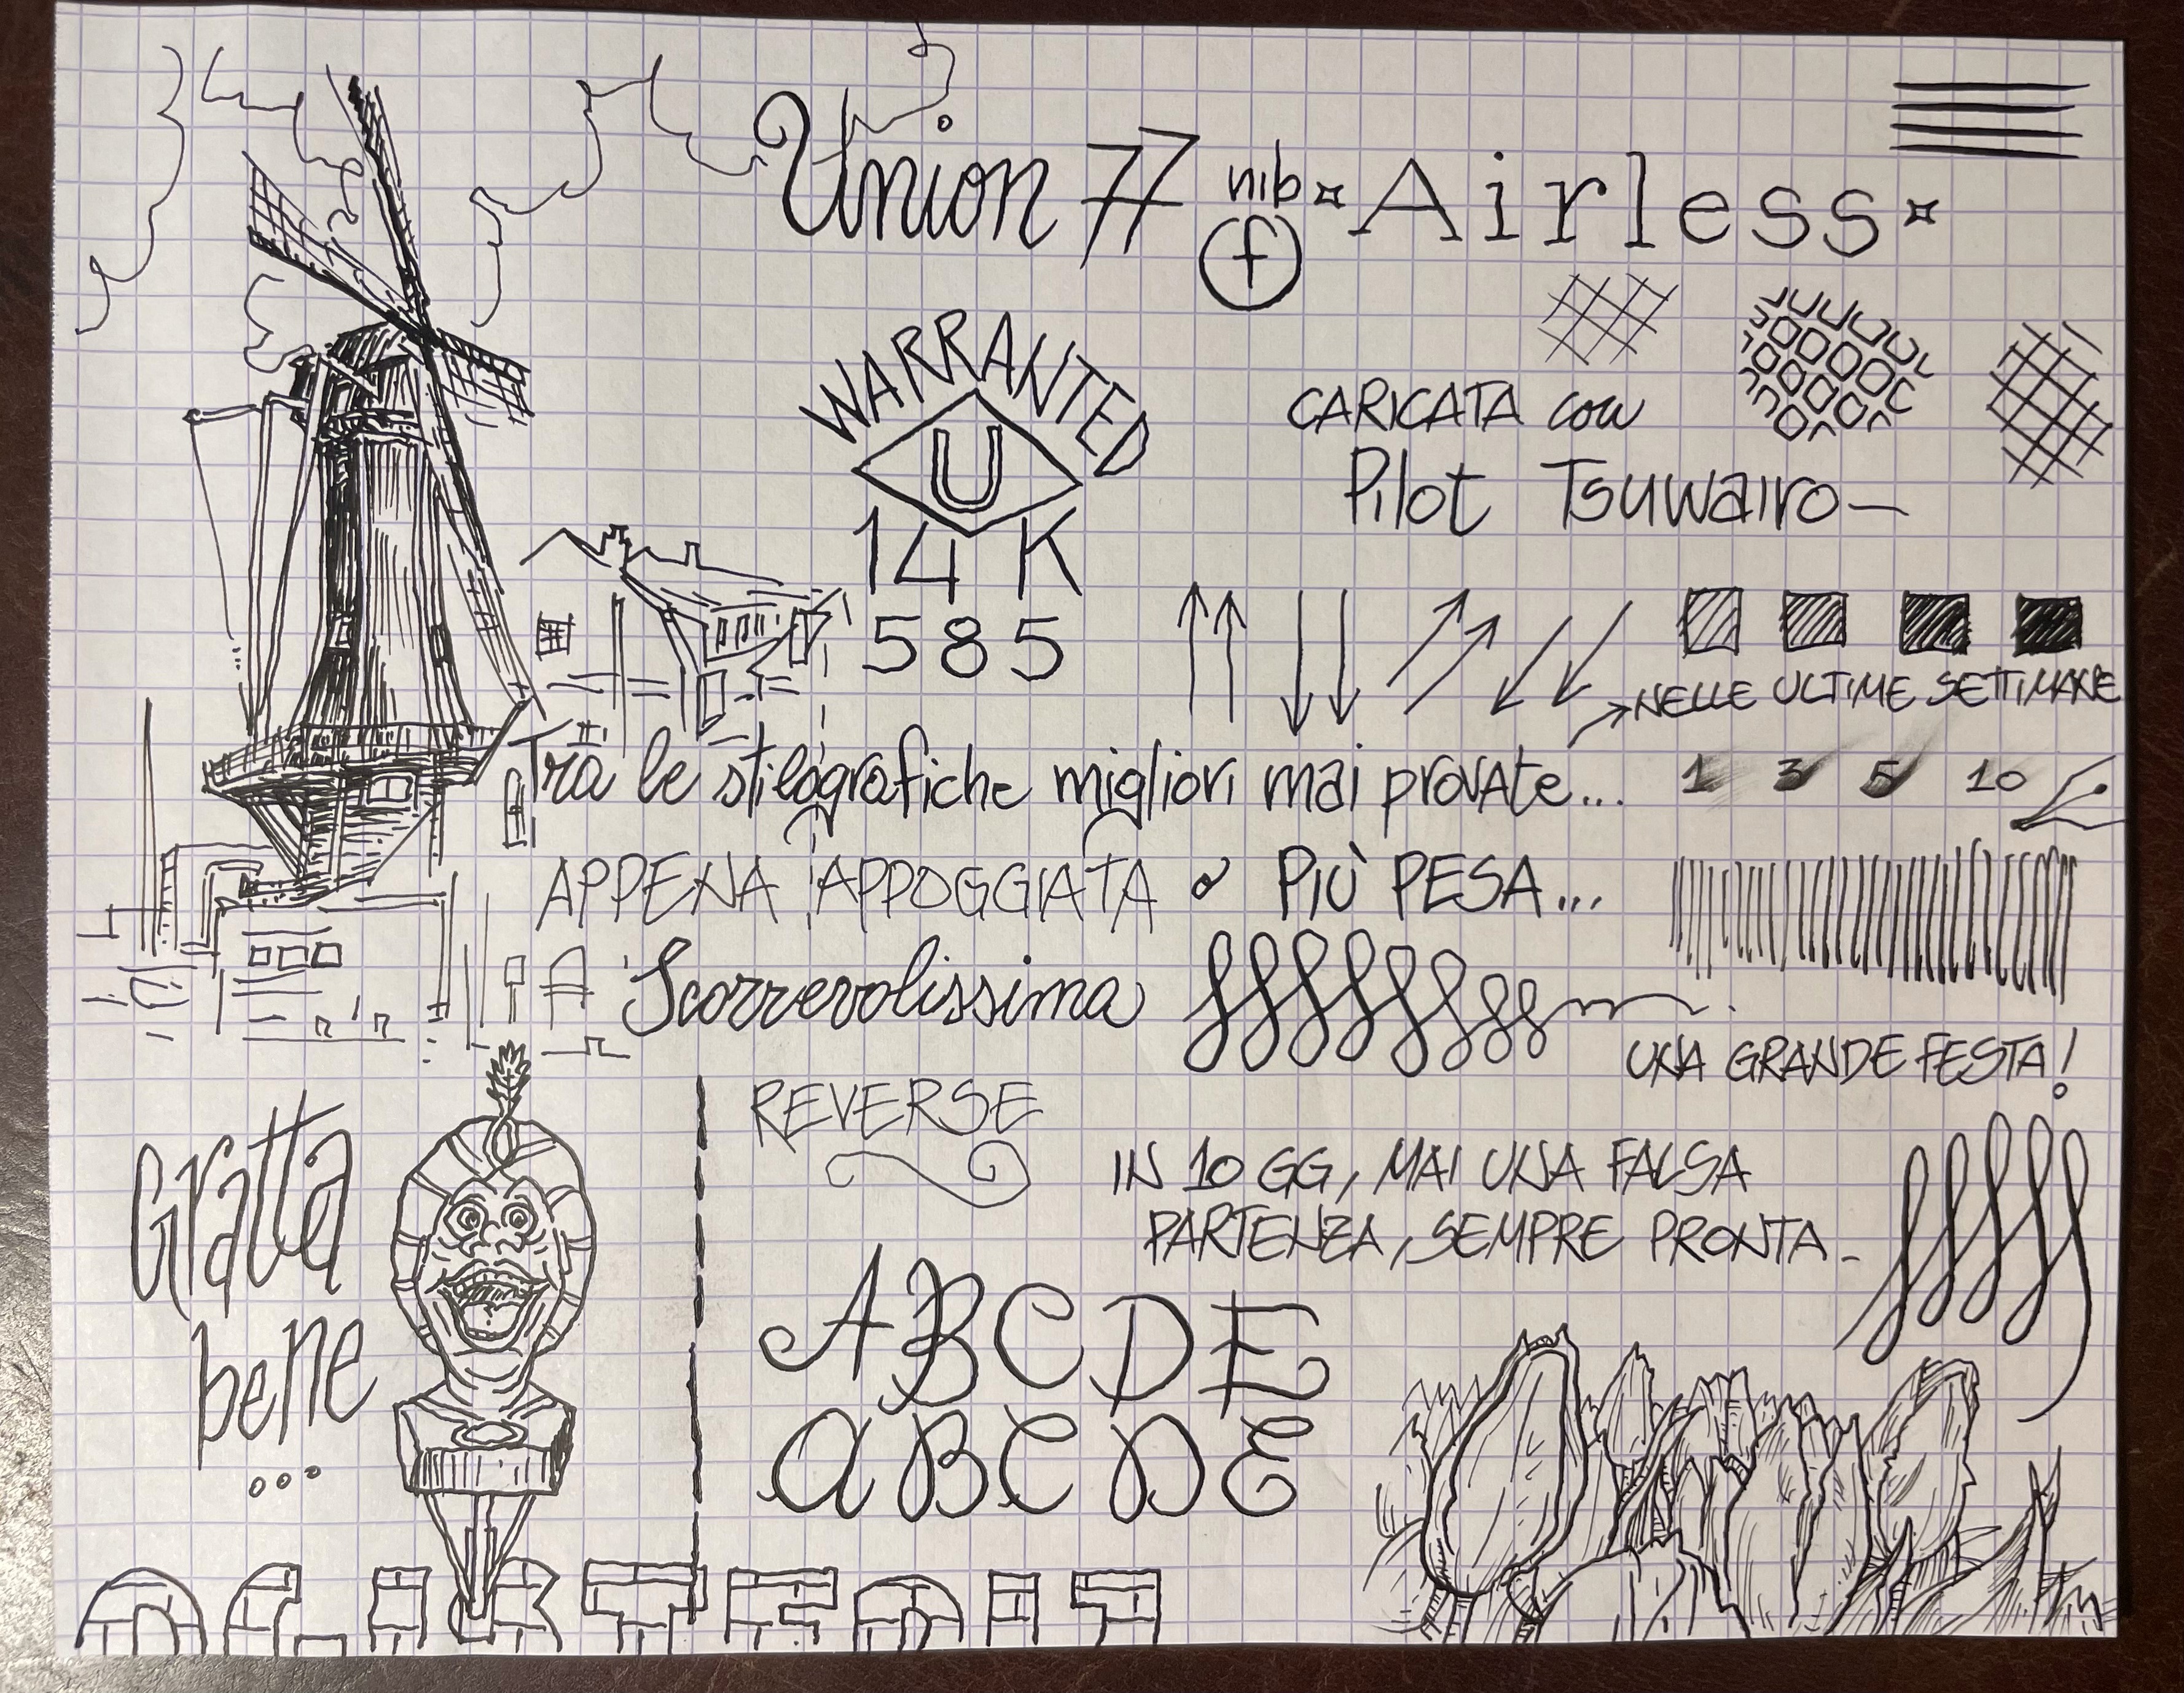 Union 77 nib f Airless
WARRANTED
U
14 K
585
CARICATA con
Pilot Tsuwairo-
NELLE ULTIME SETTIMANE
Tra le stilografiche migliori mai provate... 1 3 5 10
APPENA APPOGGIATA o PIÙ PESA...
Scorrevolissima
UNA GRANDE FESTA!
Gratta
bene
...
REVERSE
IN 10 GG, MAI UNA FALSA
PARTENZA, SEMPRE PRONTA-
ABCDE
ABCDE